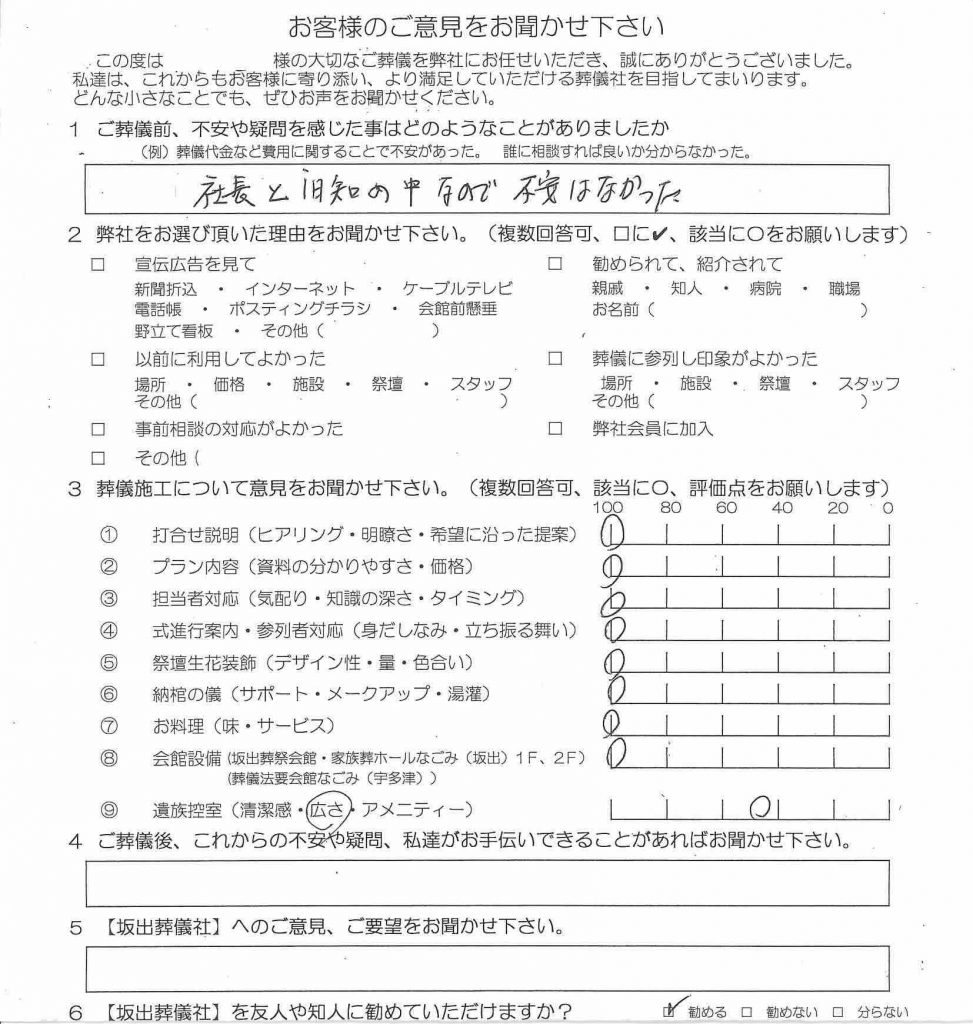 お客様のご意見をお聞かせ下さい
この度は　　　　　様の大切なご葬儀を弊社にお任せいただき、誠にありがとうございました。
私達は、これからもお客様に寄り添い、より満足していただける葬儀社を目指してまいります。
どんな小さなことでも、ぜひお声をお聞かせください。
1 ご葬儀前、不安や疑問を感じた事はどのようなことがありましたか
（例）葬儀代金など費用に関することで不安があった。　誰に相談すれば良いか分からなかった。
社長と旧知の中なので不安はなかった
2 弊社をお選び頂いた理由をお聞かせ下さい。（複数回答可、□に✔、該当に〇をお願いします）
□　宣伝広告を見て　□　勧められて、紹介されて
新聞折込　・　インターネット　・　ケーブルテレビ　親戚　・　知人　・　病院　・　職場
電話帳　・　ポスティングチラシ　・　会館前懸垂　お名前（　　　　　）
野立て看板　・　その他（　　　　　）
□　以前に利用してよかった　□　葬儀に参列し印象がよかった
場所　・　価格　・　施設　・　祭壇　・　スタッフ　場所　・　施設　・　祭壇　・　スタッフ
その他（　　　　　）　その他（　　　　　）
□　事前相談の対応がよかった　□　弊社会員に加入
□　その他（
3 葬儀施工について意見をお聞かせ下さい。（複数回答可、該当に〇、評価点をお願いします）
100　80　60　40　20　0
①　打合せ説明（ヒアリング・明瞭さ・希望に沿った提案）
②　プラン内容（資料の分かりやすさ・価格）
③　担当者対応（気配り・知識の深さ・タイミング）
④　式進行案内・参列者対応（身だしなみ・立ち振る舞い）
⑤　祭壇生花装飾（デザイン性・量・色合い）
⑥　納棺の儀（サポート・メークアップ・湯灌）
⑦　お料理（味・サービス）
⑧　会館設備（坂出葬祭会館・家族葬ホールなごみ（坂出）１F、２F）
（葬儀法要会館なごみ（宇多津））
⑨　遺族控室（清潔感・広さ・アメニティー）
4 ご葬儀後、これからの不安や疑問、私達がお手伝いできることがあればお聞かせ下さい。
5 【坂出葬儀社】へのご意見、ご要望をお聞かせ下さい。
6 【坂出葬儀社】を友人や知人に勧めていただけますか？　☑ 勧める　□ 勧めない　□ 分らない